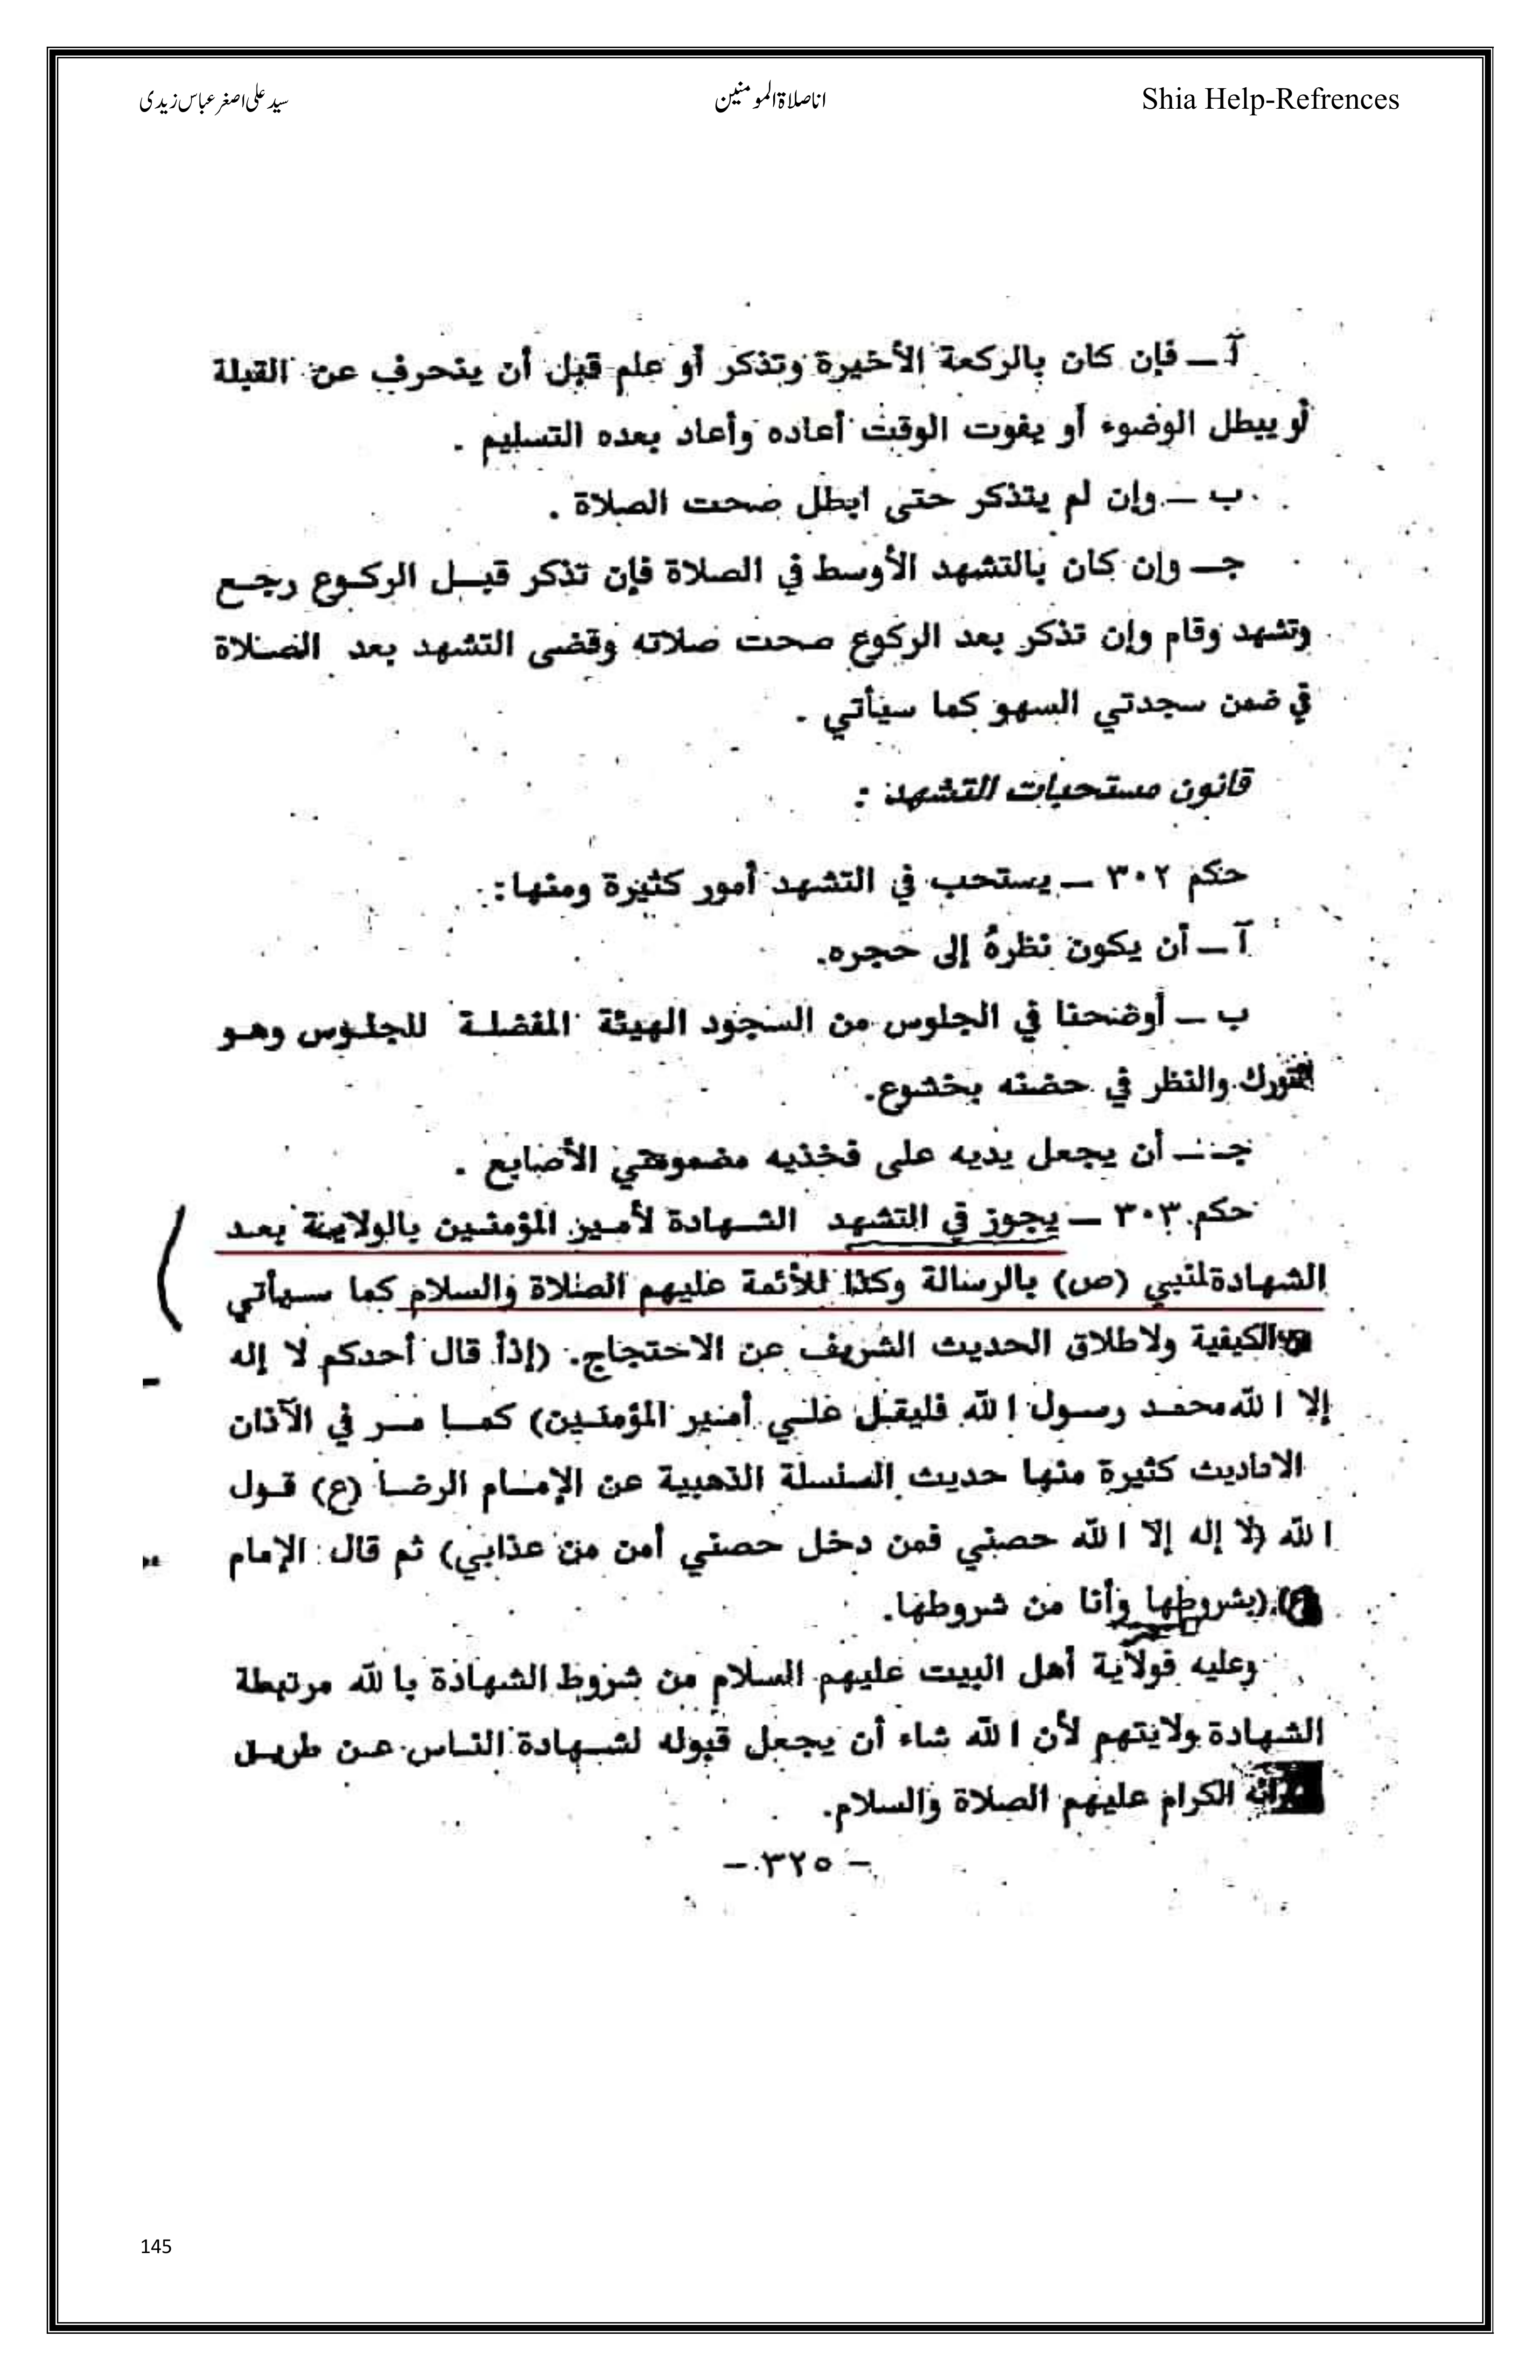 سید علی اصغر عباس زیدی
انا صلاۃ المومنین
Shia Help-Refrences
آ ــ فإن كان بالركعة الأخيرة وتذكر أو علم قبل أن ينحرف عن القبلة
أو يبطل الوضوء أو يفوت الوقت أعاده وأعاد بعده التسليم .
ب ــ وإن لم يتذكر حتى ابطل صحت الصلاة .
جـ ــ وإن كان بالتشهد الأوسط في الصلاة فإن تذكر قبـل الركـوع رجـع
وتشهد وقام وإن تذكر بعد الركوع صحت صلاته وقضى التشهد بعد الصلاة
في ضمن سجدتي السهو كما سيأتي .
قانون مستحبات التشهد :
حكم ٣٠٢ ــ يستحب في التشهد أمور كثيرة ومنها :
آ ــ أن يكون نظرهُ إلى حجره.
ب ــ أوضحنا في الجلوس من السجود الهيئة المفضلـة للجلـوس وهـو
التورك والنظر في حضنه بخشوع.
جـ ــ أن يجعل يديه على فخذيه مضمومتي الأصابع .
حكم ٣٠٣ ــ يجوز في التشهد الشـهادة لأمـير المؤمنـين بالولايـة بعـد
الشهادة للنبي (ص) بالرسالة وكذا للأئمة عليهم الصلاة والسلام كما سـيأتي
الكيفية ولاطلاق الحديث الشريف عن الاحتجاج. (إذا قال أحدكم لا إله
إلا الله محمـد رسـول الله فليقـل علـي أمـير المؤمنـين) كمـا مـر في الآذان
الاحاديث كثيرة منها حديث السلسلة الذهبية عن الإمـام الرضـا (ع) قـول
الله (لا إله إلا الله حصني فمن دخل حصني أمن من عذابي) ثم قال : الإمام
(ع) (بشروطها وأنا من شروطها.
وعليه فولاية أهل البيت عليهم السلام من شروط الشهادة بالله مرتبطة
الشهادة بولايتهم لأن الله شاء أن يجعل قبوله لشـهادة النـاس عـن طريـق
الكرام عليهم الصلاة والسلام.
– ٣٢٥ –
145